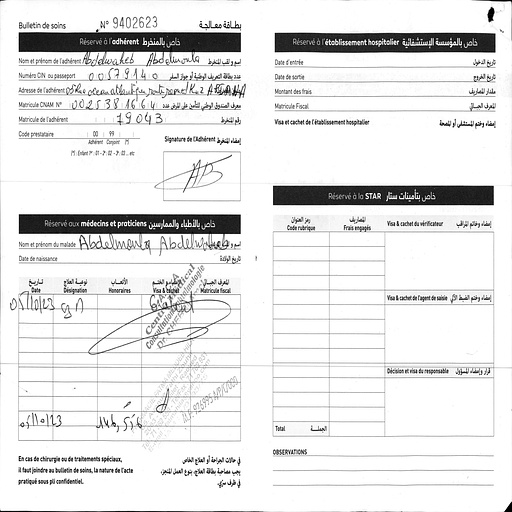 Bulletin de soins N° 9402623 بطاقة معالجة
Réservé à l'adhérent خاص بالمنخرط
Nom et prénom de l'adhérent Abdelwaheb Abdelmoula اسم و لقب المنخرط
Numéro CIN ou passeport 00579140 عدد بطاقة التعريف الوطنية أو جواز السفر
Adresse de l'adhérent
Matricule CNAM N° معرف الصندوق الوطني للتأمين على المرض عدد
Matricule de l'adhérent 79043 رقم المنخرط
Code prestataire 00 99
Adhérent Conjoint (*)
(*) : Enfant 1er : 01 - 2e : 02 - 3e : 03 ... etc
Signature de l'Adhérent إمضاء المنخرط
Réservé aux médecins et praticiens خاص بالأطباء والممارسين
Nom et prénom du malade Abdelmoula
Date de naissance تاريخ الولادة
تاريخ نوعية العلاج الأتعاب المعرف الجبائي
Date Désignation Honoraires Visa & cachet Matricule fiscal
05/10/23
05/10/23 146,556
En cas de chirurgie ou de traitements spéciaux,
il faut joindre au bulletin de soins, la nature de l'acte
pratiqué sous pli confidentiel.
في حالات الجراحة أو العلاج الخاص
يجب مصاحبة بطاقة العلاج، بنوع العمل المنجز،
في ظرف سري.
Réservé à l'établissement hospitalier خاص بالمؤسسة الإستشفائية
Date d'entrée تاريخ الدخول
Date de sortie تاريخ الخروج
Montant des frais مقدار المصاريف
Matricule Fiscal المعرف الجبائي
Visa et cachet de l'établissement hospitalier إمضاء وختم المستشفى أو المصحة
Réservé à la STAR خاص بتأمينات ستار
رمز العنوان المصاريف
Code rubrique Frais engagés
Visa & cachet du vérificateur إمضاء وختم المراقب
Visa & cachet de l'agent de saisie
Décision et visa du responsable قرار وإمضاء المسؤول
Total الجملة
OBSERVATIONS